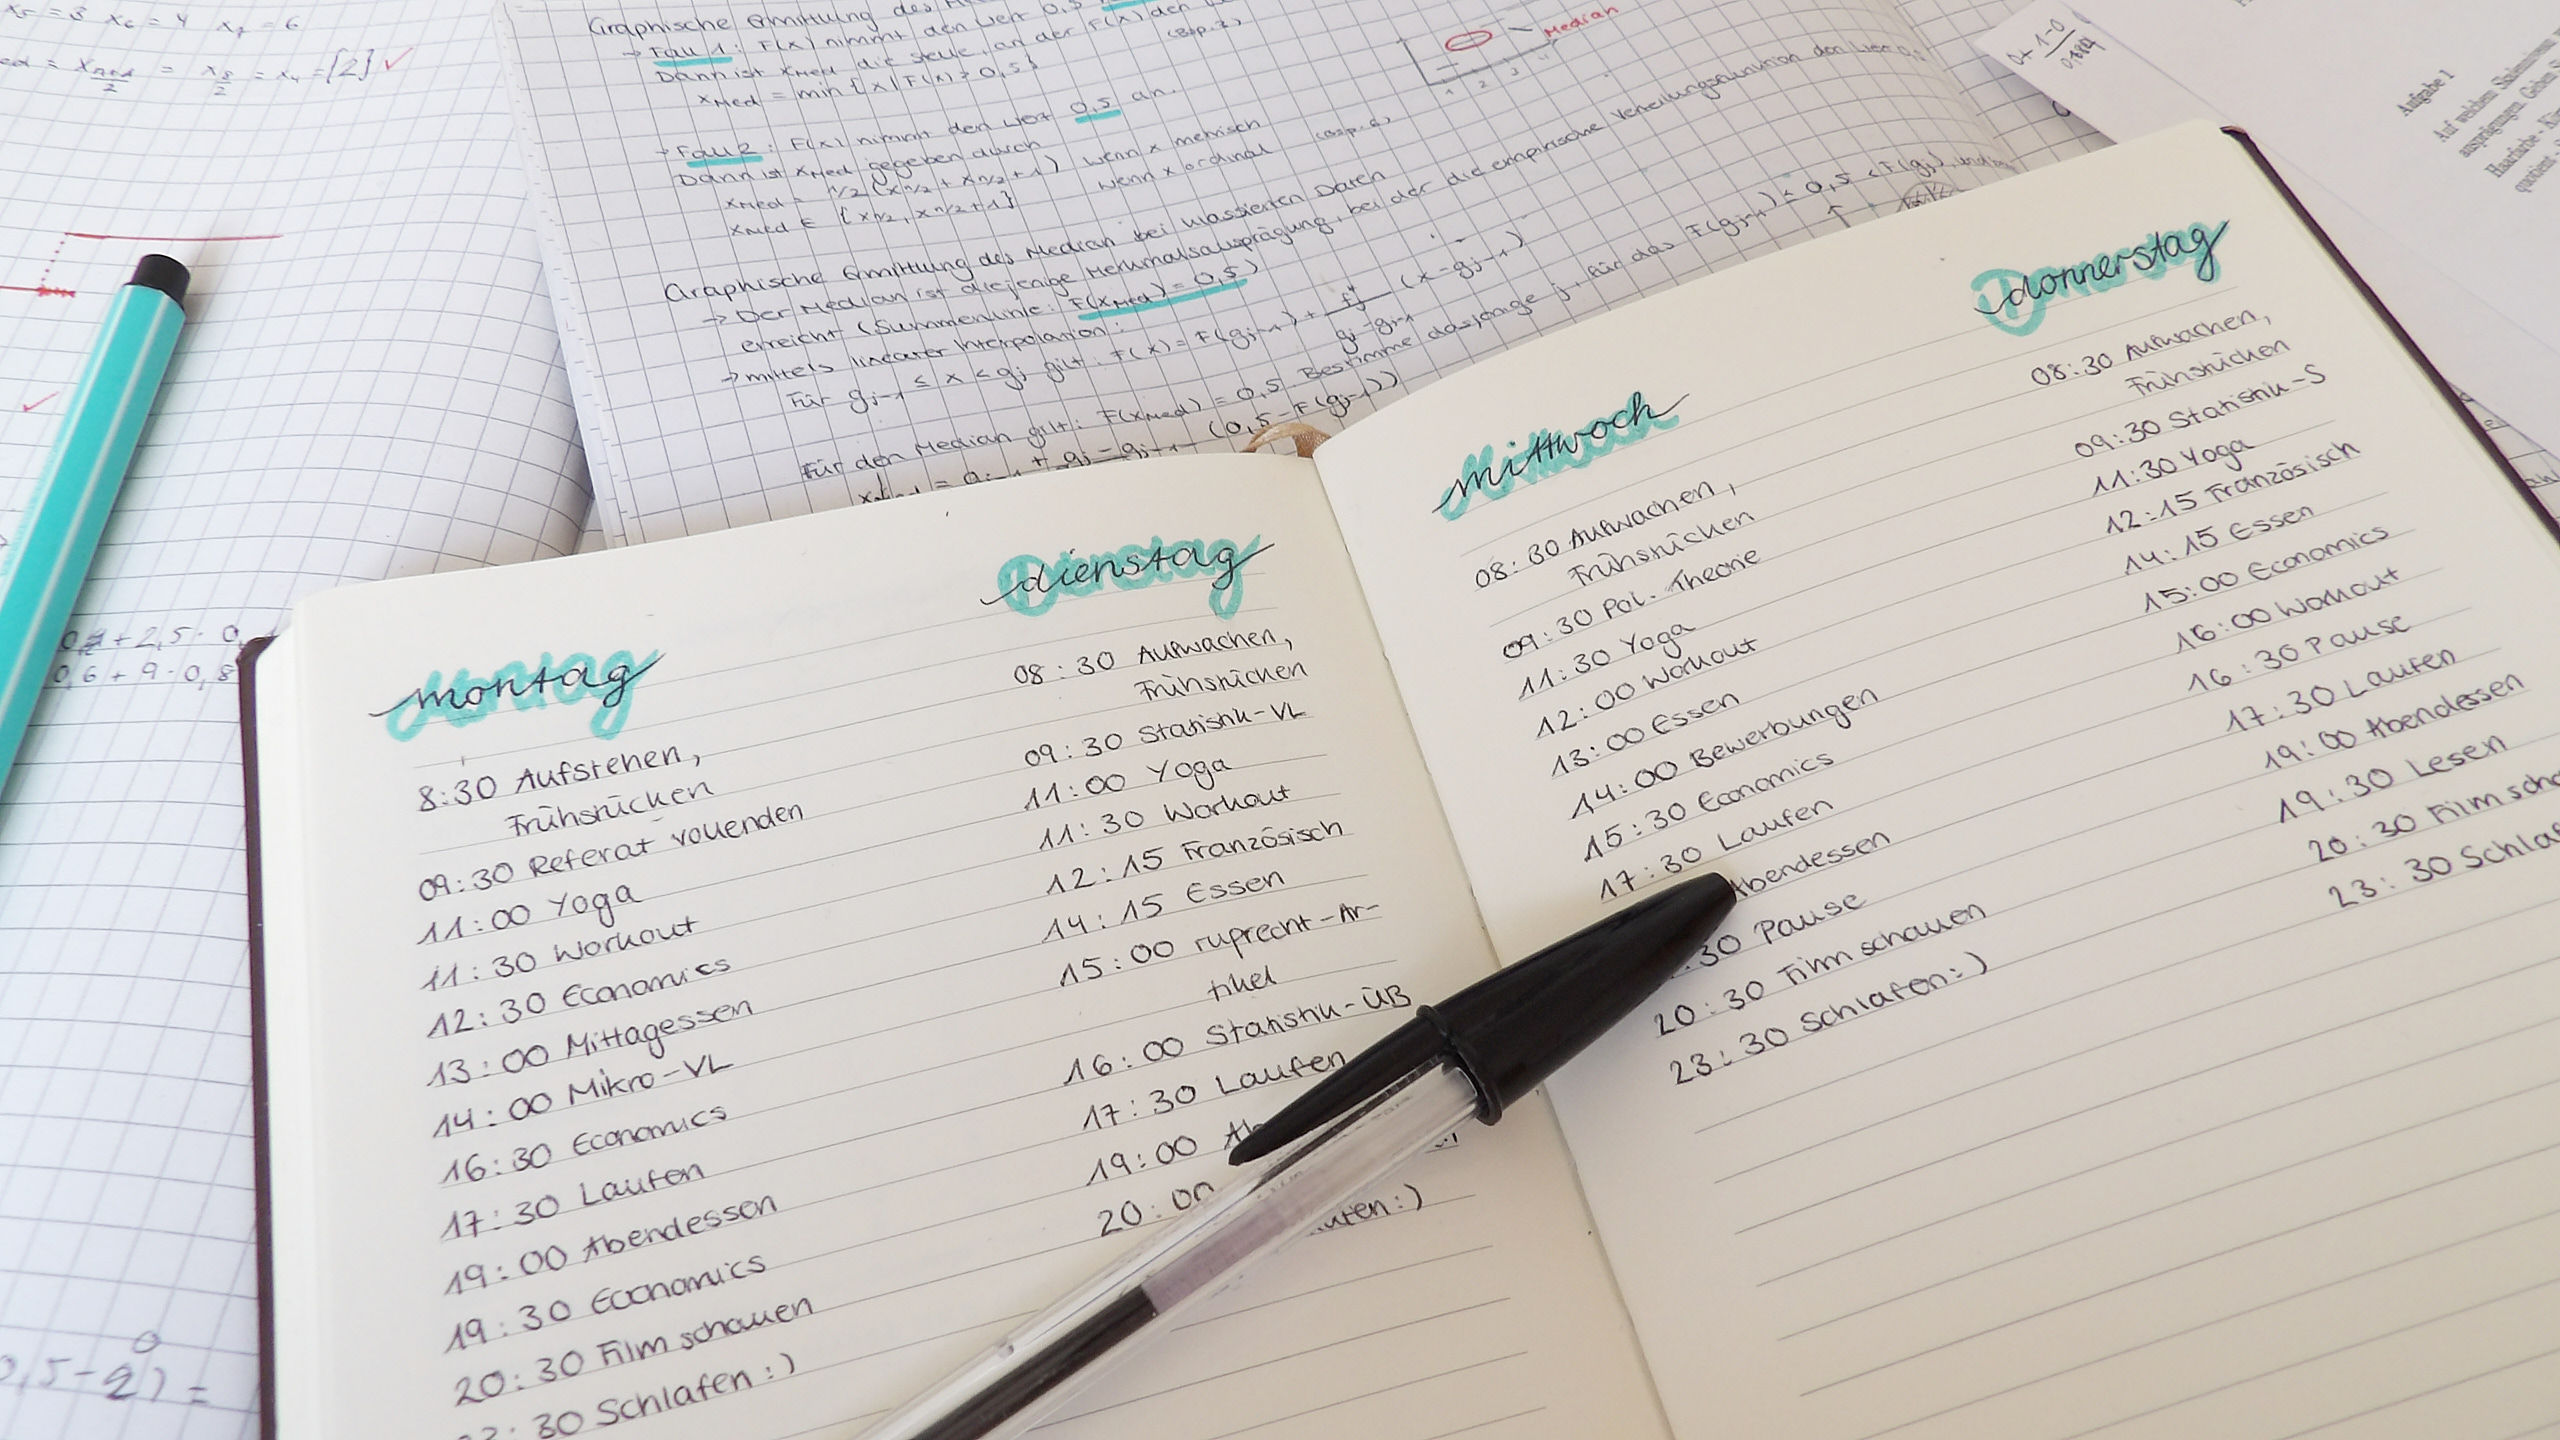 x₅ = 3 x₆ = 4 x₇ = 6
= x₄ = {2} ✓
Graphische Ermittlung des
→ Fall 1: F(x) nimmt den Wert 0,5
Dann ist xMed die Stelle, an der F(x) den
xMed = min {x | F(x) > 0,5}
(Bsp. 2)
→ Fall 2: F(x) nimmt den Wert 0,5 an.
Dann ist xMed gegeben durch
xMed = 1/2 (xn/2 + xn/2+1) wenn x metrisch
xMed ∈ {xn/2, xn/2+1} wenn x ordinal
Graphische Ermittlung des Median bei klassierten Daten
→ Der Median ist diejenige Merkmalsausprägung, bei der die empirische Verteilungsfunktion den Wert 0,5
erreicht (Summenlinie: F(xMed) = 0,5)
→ mittels linearer Interpolation:
Für gj-1 ≤ x ≤ gj gilt: F(x) = F(gj-1) + (x - gj-1)
Für den Median gilt: F(xMed) = 0,5. Bestimme dasjenige j, für das F(gj-1) ≤ 0,5 < F(gj), und
(0,5 - F(gj-1))
Median
1 2 3 4
Aufgabe 1
Auf welchem
Haarfarbe
0,6 + 9 · 0,8
Montag
8:30 Aufstehen,
Frühstücken
09:30 Referat vollenden
11:00 Yoga
11:30 Workout
12:30 Economics
13:00 Mittagessen
14:00 Mikro-VL
16:30 Economics
17:30 Laufen
19:00 Abendessen
19:30 Economics
20:30 Film schauen
:30 Schlafen :)
Dienstag
08:30 Aufwachen,
Frühstücken
09:30 Statistik-VL
11:00 Yoga
11:30 Workout
12:15 Französisch
14:15 Essen
15:00 ruprecht-Ar-
tikel
16:00 Statistik-ÜB
17:30 Laufen
19:00
20:00
:)
Mittwoch
08:30 Aufwachen,
Frühstücken
09:30 Pol. Theorie
11:30 Yoga
12:00 Workout
13:00 Essen
14:00 Bewerbungen
15:30 Economics
17:30 Laufen
Abendessen
:30 Pause
20:30 Film schauen
23:30 Schlafen :)
Donnerstag
08:30 Aufwachen,
Frühstücken
09:30 Statistik-S
11:30 Yoga
12:15 Französisch
14:15 Essen
15:00 Economics
16:00 Workout
16:30 Pause
17:30 Laufen
19:00 Abendessen
19:30 Lesen
20:30 Film scha
23:30 Schlaf